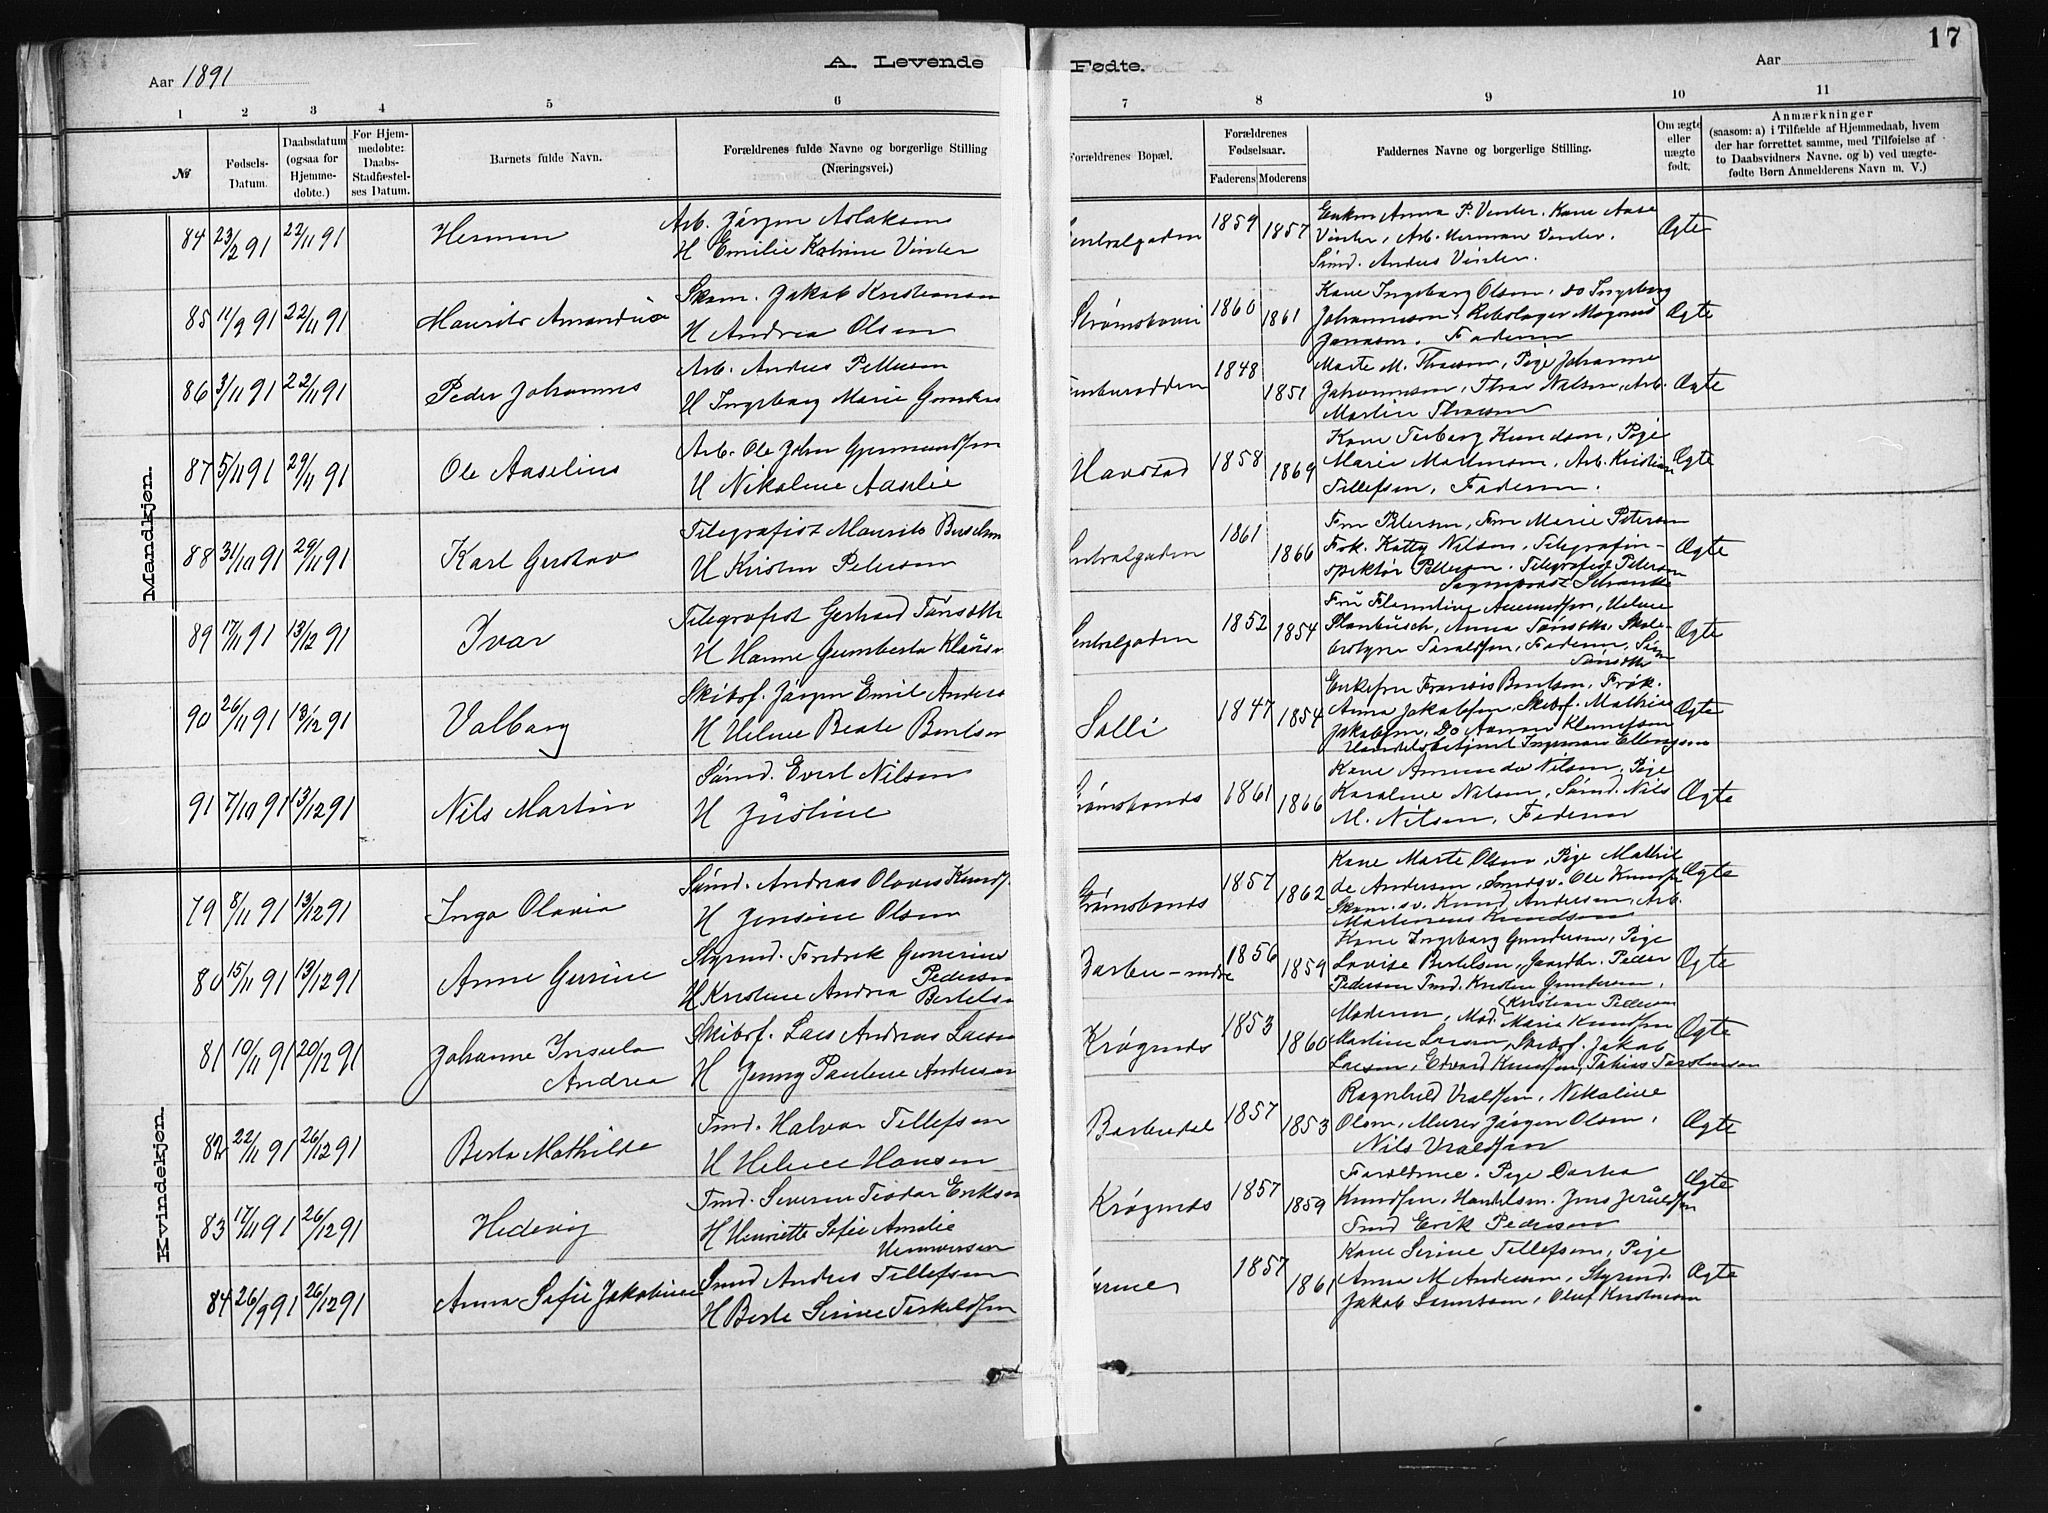 17
Aar 1891
A. Levende Fødte.
Aar
1 2 3 4 5 6 7 8 9 10 11
№
Fødsels-Datum.
Daabsdatum (ogsaa for Hjemme-døbte.)
For Hjem-medøbte: Daabs-Stadfæstel-ses Datum.
Barnets fulde Navn.
Forældrenes fulde Navne og borgerlige Stilling (Næringsvei.)
Forældrenes Bopæl.
Forældrenes Fødselsaar.
Faderens Moderens
Faddernes Navne og borgerlige Stilling.
Om ægte eller uægte født.
Anmærkninger
(saasom: a) i Tilfælde af Hjemmedaab, hvem
der har forrettet samme, med Tilføielse af
to Daabsvidners Navne. og b) ved uægte-
fødte Børn Anmelderens Navn m. V.)
Mandkjøn.
84 23/2 91 22/11 91 Herman
Arb. Jörgen Aslaksen
H Emilie Katrine Vinter
Centralgaden 1859 1857
Enken Anna P. Vinter. Kone Aase
Vinter, Arb. Herman Vinter.
Sømd. Anders Vinter.
Ægte
85 11/9 91 22/11 91 Maurits Amandus
Skom. Jakob Kristiansen
H Andrea Olsen
Strømsbovei 1860 1861
Kone Ingeborg Olsen, do Ingeborg
Johannesen, Rebslager Magnus
Fadern
Ægte
86 3/11 91 22/11 91 Peder Johannes
Arb. Anders Pettersen
H Ingeborg Marie
1848 1851
Marte M. Thorsen, Pige Johanne
Johannesen, Thor Nilsen, Arb.
Martin Thorsen
Ægte
87 5/11 91 29/11 91 Ole Aaselius
Arb. Ole John Gjermundsen
H Nikoline Aaselie
Havstad 1858 1869
Kone Terborg Knudsen, Pige
Marie Martinsen, Arb. Kristian
Tellefsen, Faderen.
Ægte
88 31/10 91 29/11 91 Karl Gustav
Telegrafist Maurits
H Kirsten Petersen
Centralgaden 1861 1866
Fru Petersen, Fru Marie Petersen
Frk. Katty Nilsen, Telegrafin-
spektør Petersen. Telegrafist Petersen
Ægte
89 17/11 91 13/12 91 Ivar
Telegrafist Gerhard
H Hanne Gumberta
Centralgaden 1852 1854
Fru Flerentine Amundsen, Helene
Anna Skole-
bestyrer Taraldsen, Faderen,
Ægte
90 26/11 91 13/12 91 Valborg
Skibsf. Jörgen Emil Anders
H Helene Beate Berntsen
Solli 1847 1854
Enkefru Fransis Berntsen, Frøk.
Anna Jakobsen, Skibsf. Mathias
Jakobsen, Do
Handelsbetjent Ingeman Ellingsen
Ægte
91 7/10 91 13/12 91 Nils Martin
Sømd. Evert Nilsen
H Justine
Strømsbonds 1861 1866
Kone Amunda Nilsen, Pige
Karoline Nilsen, Sømd. Nils
M. Nilsen, Faderen
Ægte
Kvindekjøn.
79 8/11 91 13/12 91 Inga Olavia
Sømd. Andreas Olaves Knuds.
H Jensine Olsen
Strømsbonds 1857 1862
Kone Marte Olsen, Pige Mathil
de Andersen, Smedsv. Ole
Skom. sv. Knud Andersen, Arb.
Knudsen
Ægte
80 15/11 91 13/12 91 Anne Gurine
Styrmd. Fredrik Gunerius
Pedersen
H Kristine Andrea Bertelsen
Barbu-indre 1856 1859
Kone Ingeborg Gundersen, Pige
Lovise Bertelsen, Gaardbr. Peder
Pedersen Tmd. Kristen Gundersen,
Kristiane Pettersen
Ægte
81 10/11 91 20/12 91 Johanne Insula
Andrea
Skibsf. Lars Andreas Larsen
H Jenny Pauline Andersen
Krøgenes 1853 1860
Moderen, Mad. Maria Knudsen
Martine Larsen, Skibsf. Jakob
Larsen, Edvard Knudsen, Tobias Torstensen
Ægte
82 22/11 91 26/12 91 Berta Mathilde
Tmd. Halvor Tellefsen
H Helene Hansen
Barbudal 1857 1853
Ragnhild Vraldsen, Nikoline
Olsen, Murer Jörgen Olsen,
Nils Vraldsen
Ægte
83 17/11 91 26/12 91 Hedevig
Tmd. Severin Teodor Eriksen
H Henriette Sofie Amalie
Krøgenes 1857 1859
Forældrene. Pige Dortea
Knudsen, Handelsm. Jens
Tmd Erik Pedersen
Ægte
84 26/9 91 26/12 91 Anna Sofie Jakobine
Smed Anders Tellefsen
H Berte Serine Torkeldsen
1857 1861
Kone Serine Tellefsen, Pige
Anna M Andersen, Styrmd.
Jakob Oluf Kristensen
Ægte